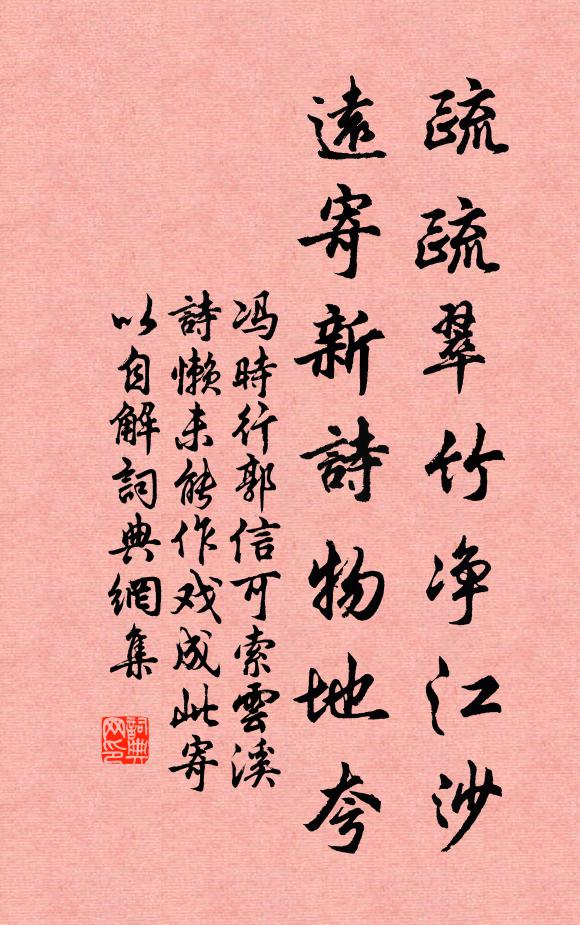 疏疏翠竹净江沙
遠寄新詩物地夸
冯時行郭信可索雲溪
詩懒未能作戏成此寄
以自解詞典網集
詞典
网印